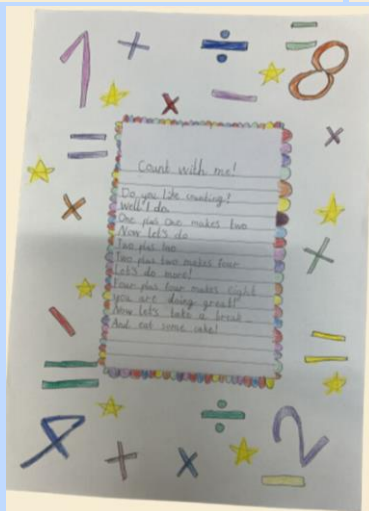 1
8
Count with me!
Do you like counting?
Well I do.
One plus One makes two
Now let's do
Two plus two
Two plus two makes four
Let's do more!
Four plus four makes eight
you are doing great!
Now let's take a break
And eat some cake!
4
2